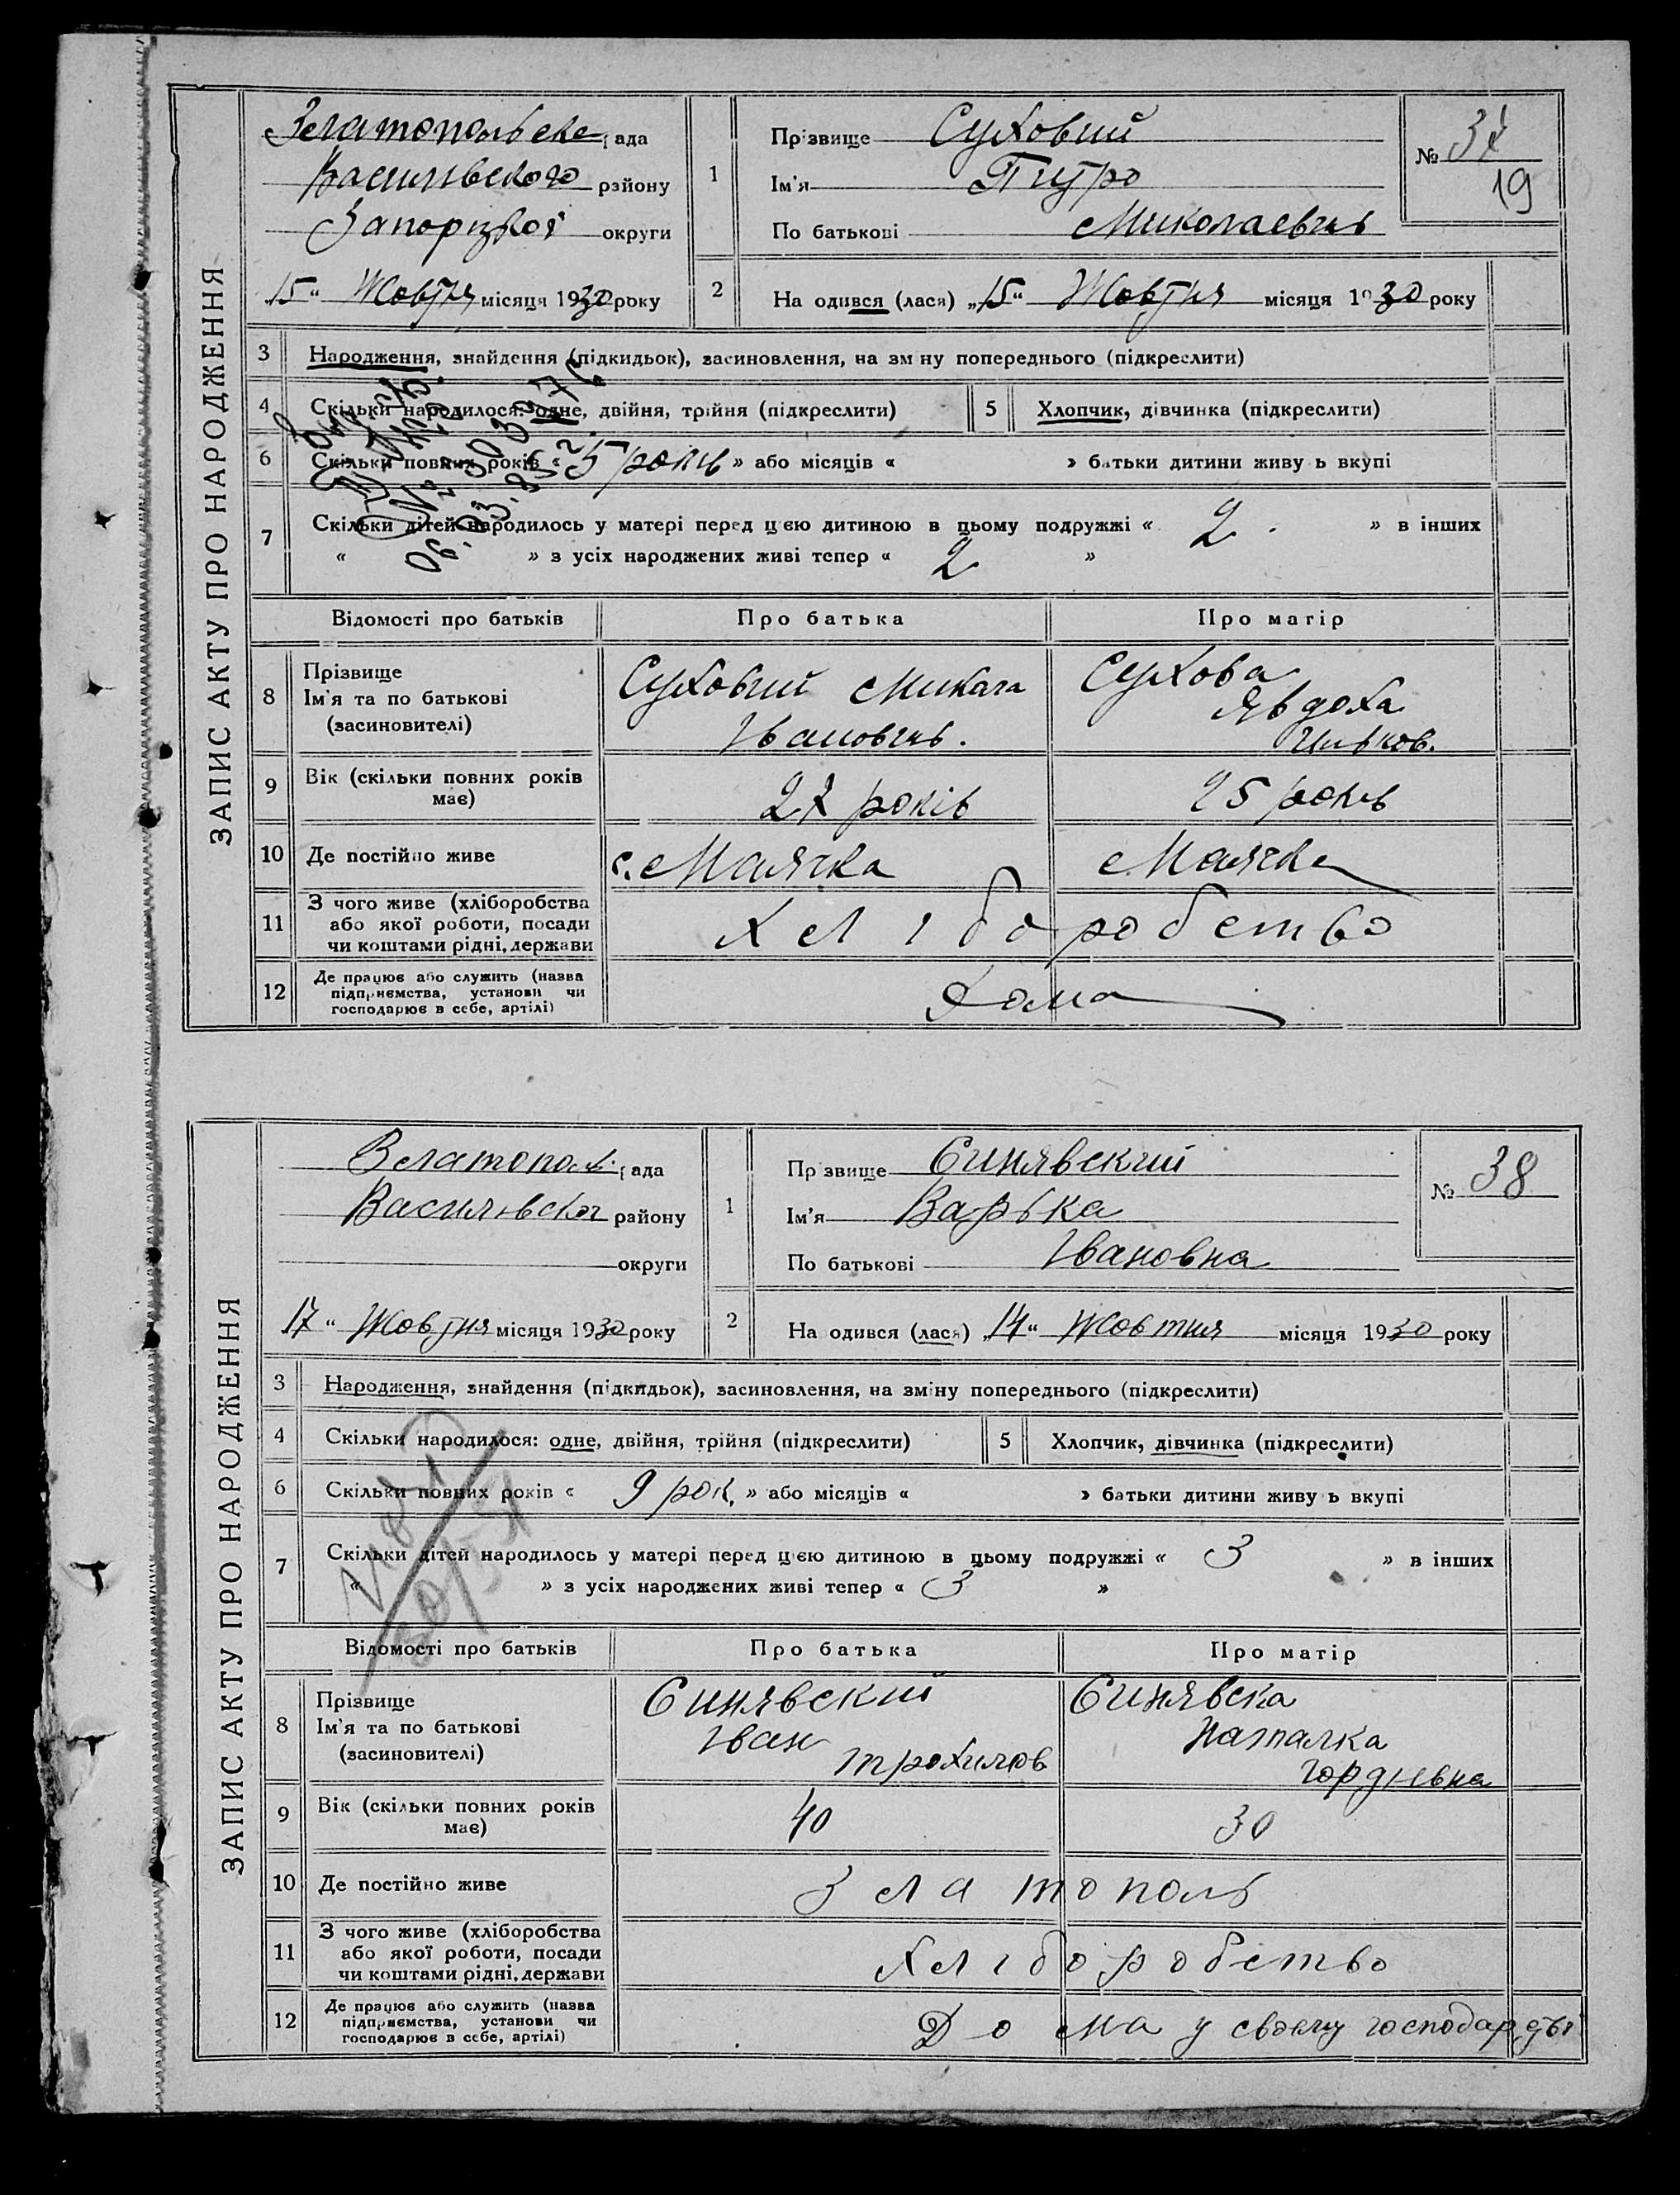 ЗАПИС АКТУ ПРО НАРОДЖЕННЯ
Златопольска рада
Василівського району
Запорізкої округи
„15“ Жовтня місяця 1930 року
1
Прізвище Суховий
Ім'я Питро
По батькові Миколаевичь
№ 37
19
2
На одився (лася) „15“ Жовтня місяця 1930 року
3 Народження, знайдення (підкидьок), засиновлення, на зм ну попереднього (підкреслити)
4 Скільки народилося: одне, двійня, трійня (підкреслити)
5 Хлопчик, дівчинка (підкреслити)
6 Скільки повних років « 5 років » або місяців « » батьки дитини живу ь вкупі
7 Скільки дітей народилось у матері перед цією дитиною в цьому подружжі « 2 » в інших
« » з усіх народжених живі тепер « 2 »
№ 003976
06.03.85г.
Відомості про батьків Про батька Про матір
8 Прізвище
Ім'я та по батькові
(засиновителі)
Суховий Микала
Івановичь.
Сухова
Явдоха
9 Вік (скільки повних років
має)
27 років 25 років
10 Де постійно живе с. Маячка с. Маячка
11 З чого живе (хліборобства
або якої роботи, посади
чи коштами рідні, держави
хліборобство
12 Де працює або служить (назва
підприємства, установи чи
господарює в себе, артілі)
Дома
ЗАПИС АКТУ ПРО НАРОДЖЕННЯ
Златопол. рада
Василівског району
округи
17 “ Жовтня місяця 1930 року
1
Пр звище Синявский
Ім'я Варька
По батькові Івановна
№ 38
2
На одився (лася) „14“ Жовтня місяця 1930 року
3 Народження, знайдення (підкидьок), засиновлення, на зміну попереднього (підкреслити)
4 Скільки народилося: одне, двійня, трійня (підкреслити)
5 Хлопчик, дівчинка (підкреслити)
6 Скільки повних років « 9 рок. » або місяців « » батьки дитини живу ь вкупі
7 Скільки дітей народилось у матері перед цією дитиною в цьому подружжі « 3 » в інших
« » з усіх народжених живі тепер « 3 »
Відомості про батьків Про батька Про матір
8 Прізвище
Ім'я та по батькові
(засиновителі)
Синявский
Іван
Трохимов
Синявска
Наталка
Гордіевна
9 Вік (скільки повних років
має)
40 30
10 Де постійно живе Златополь
11 З чого живе (хліборобства
або якої роботи, посади
чи коштами рідні, держави
хліборобство
12 Де працює або служить (назва
підприємства, установи чи
господарює в себе, артілі)
Дома у своему